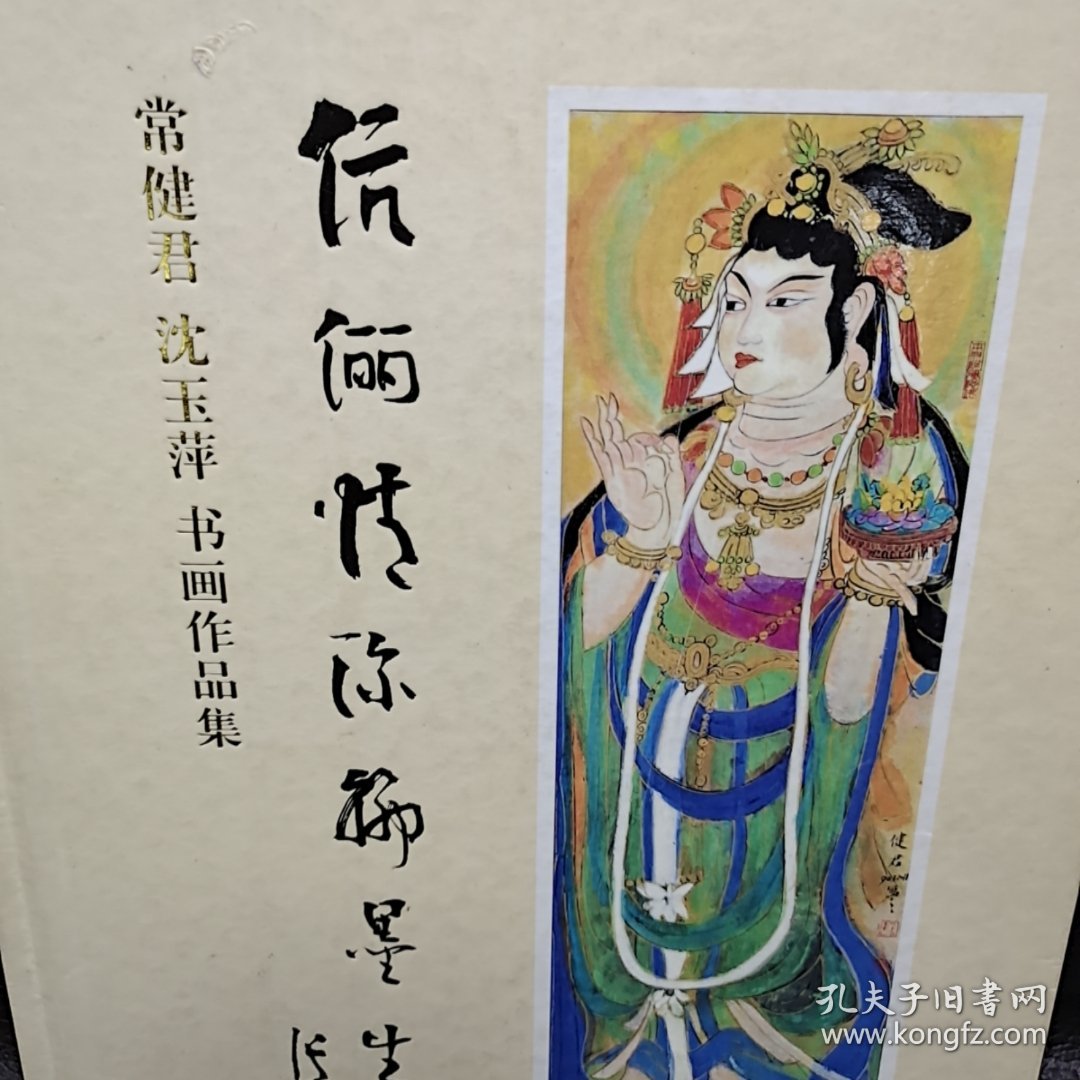 常健君 沈玉萍 书画作品集
伉俪情深翰墨生
健君
孔夫子旧書网
www.kongfz.com